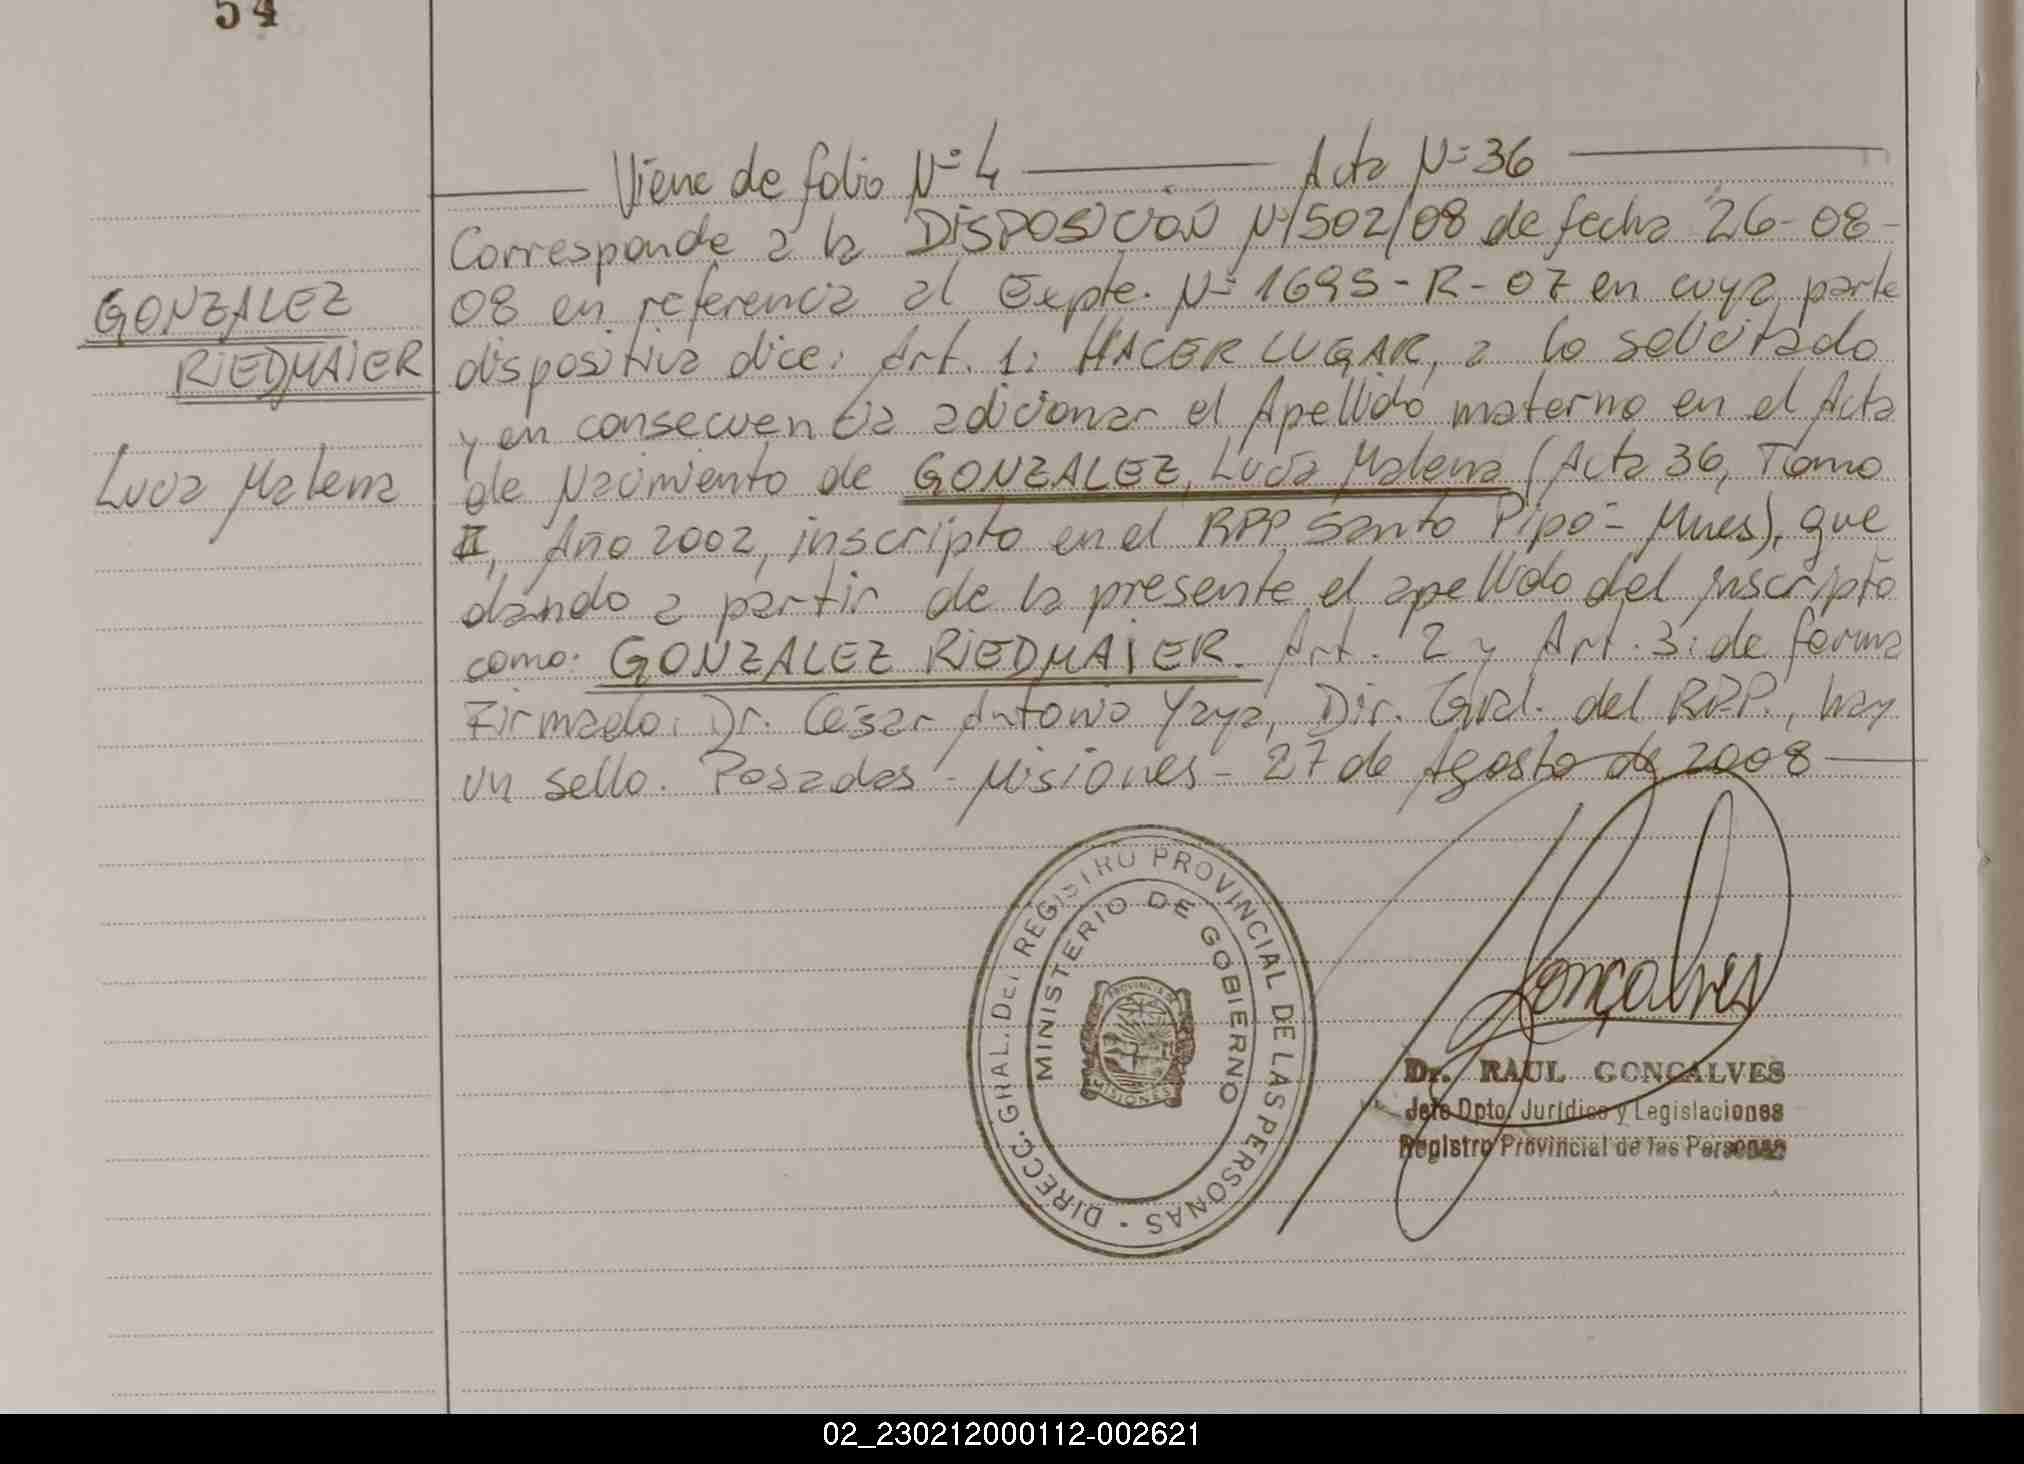 54
Viene de folio Nº 4 Acta Nº 36
Corresponde a la DISPOSICIÓN Nº 1502/08 de fecha 26-08-
08 en referencia al Expte. Nº 1695-R-07 en cuya parte
dispositiva dice: Art. 1: HACER LUGAR, a lo solicitado
y en consecuencia adicionar el Apellido materno en el Acta
de Nacimiento de GONZALEZ, Lucía Malena (Acta 36, Tomo
II, Año 2002, inscripto en el RPP Santo Pipó - Mnes), que
dando a partir de la presente el apellido del inscripto
como: GONZALEZ RIEDMAIER. Art. 2 y Art. 3: de forma
Firmado: Dr. César Antonio Yaya, Dir. Gral. del RPP., hay
un sello. Posadas - Misiones - 27 de Agosto de 2008
GONZALEZ
RIEDMAIER
Lucía Malena
DIRECC. GRAL. DEL REGISTRO PROVINCIAL DE LAS PERSONAS
MINISTERIO DE GOBIERNO
PROVINCIA DE
MISIONES
Gonçalves
Dr. RAUL GONCALVES
Jefe Dpto. Jurídico y Legislaciones
Registro Provincial de las Personas
02_230212000112-002621